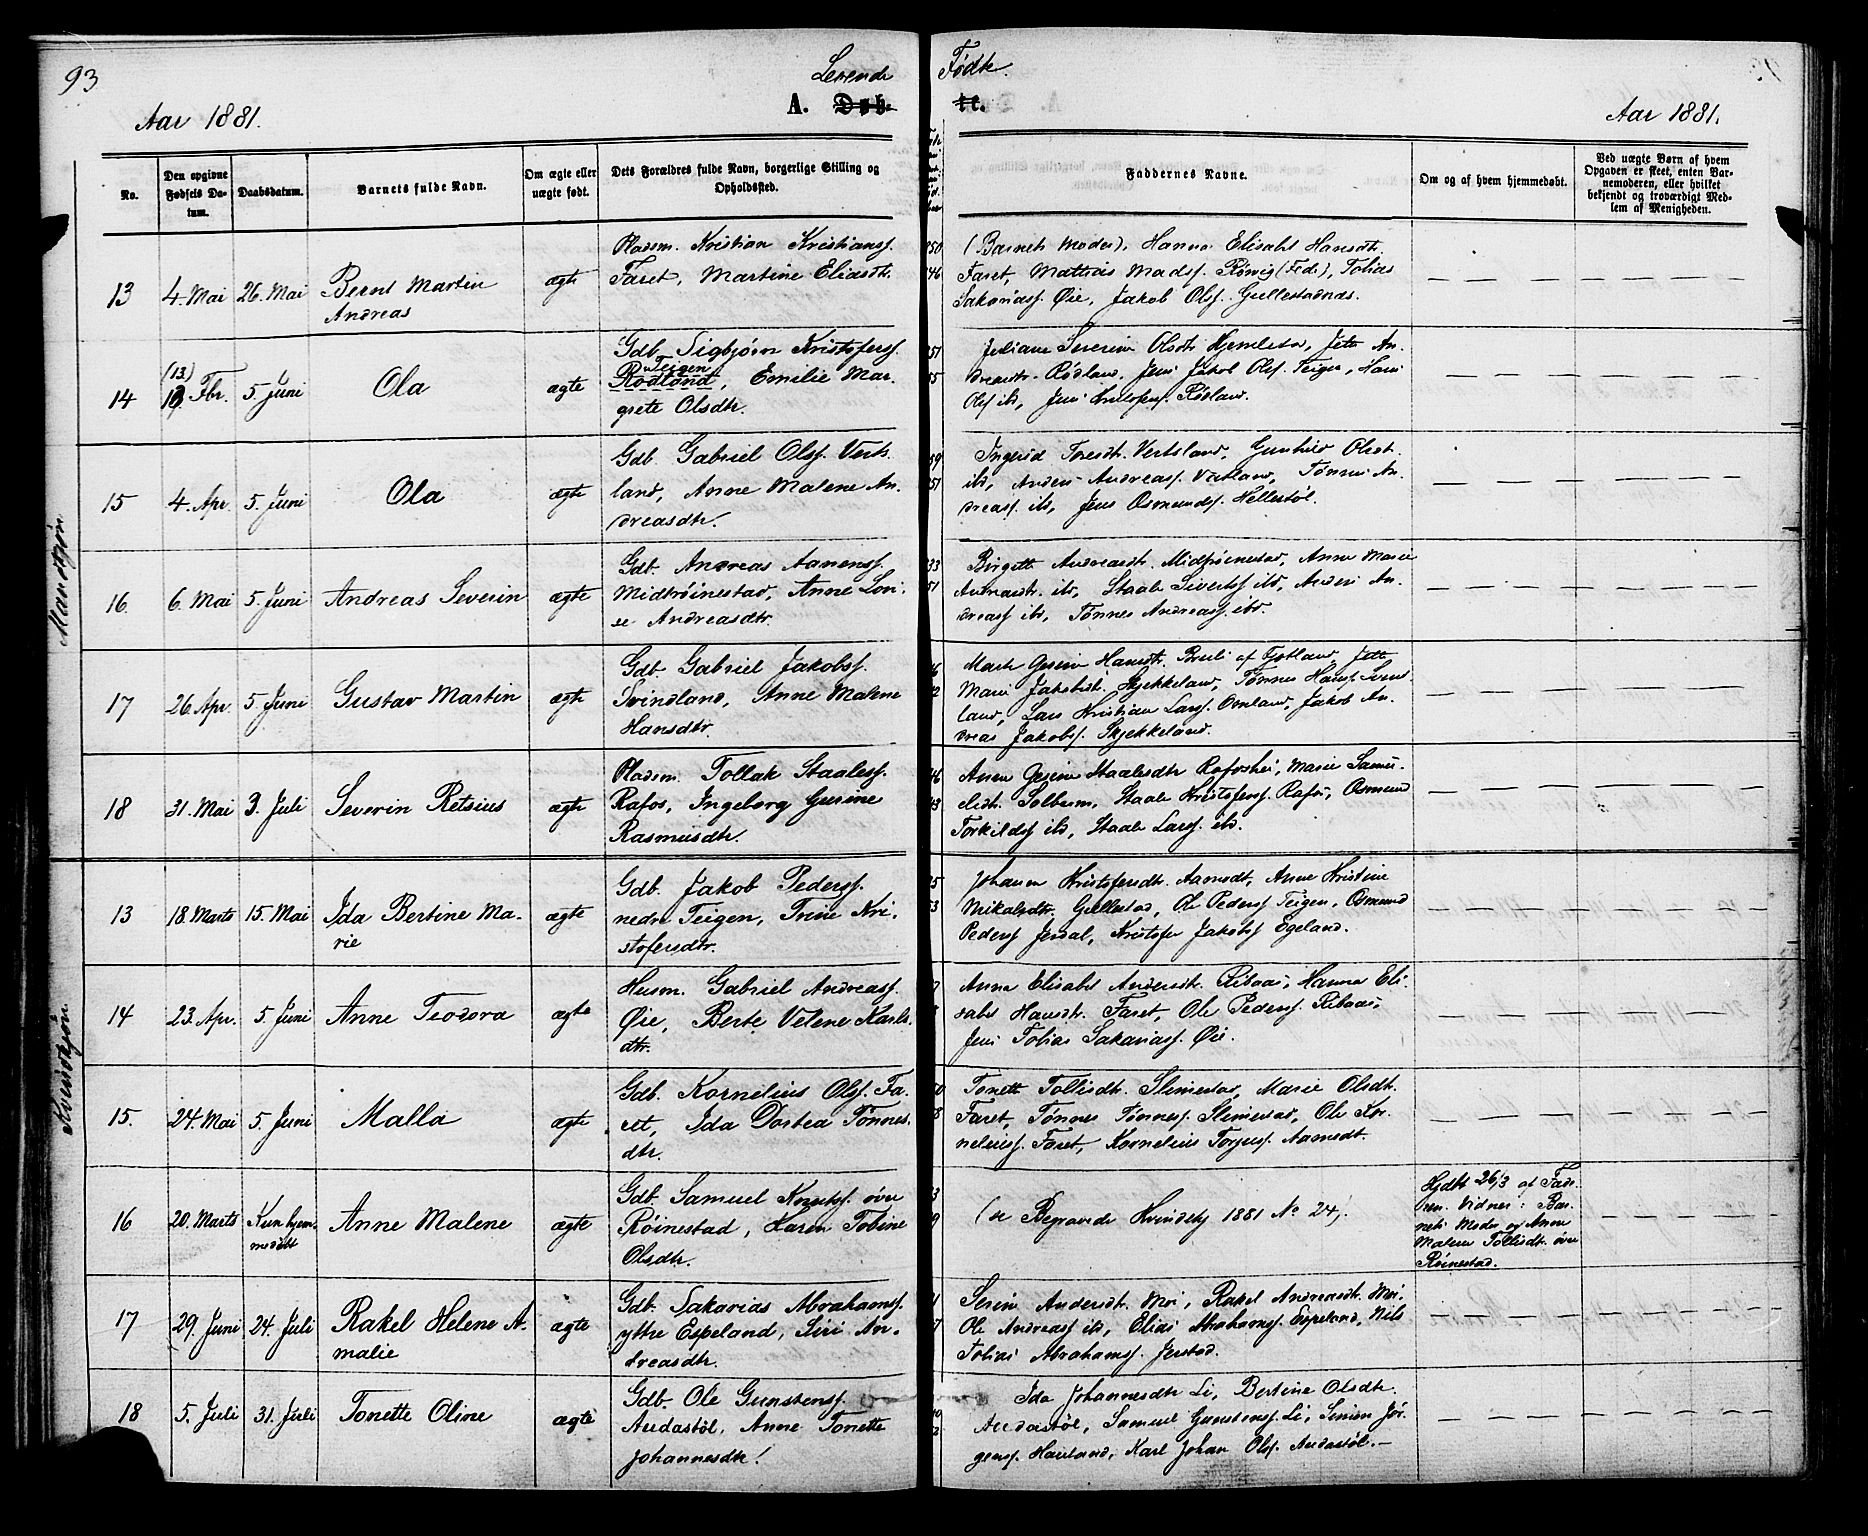 93
Levende
Fødte.
Aar 1881.
A. Døb-
te.
Aar 1881.
No.
Den opgivne
Fødsels Da-
tum.
Daabsdatum.
Barnets fulde Navn.
Om ægte eller
uægte født.
Dets Forældres fulde Navn, borgerlige Stilling og
Opholdssted.
Faddernes Navne.
Om og af hvem hjemmedøbt.
Ved uægte Børn af hvem
Opgaven er skeet, enten Bar-
nemoderen, eller hvilket
bekjendt og troværdigt Med-
lem af Menigheden.
Mandkjøn
13
4. Mai
26. Mai
Bernt Martin
Andreas
ægte
Pladsm. Kristian Kristians.
Faret, Martine Eliasdt.
50
46
(Barnets Moder), Hanna Elisabet Hansdt.
Faret, Mathias Madss. Røvig (Fede), Tobias
Sakariass. Øie, Jakob Olss. Gullestadnæs.
14
(13)
Fbr.
5. Juni
Ola
ægte
Gdb. Sigbjørn Kristofers.
Teigen
Rødland, Emilie Mar-
grete Olsdtr.
51
55
Juliane Severine Olsdtr. Hjemlestad, Jete An-
dreasdtr. Rødland, Jens Jakob Olss. Teigen, Hans
Olss ibd, Jens Kristofers. Rødland.
15
4. Apr.
5. Juni
Ola
ægte
Gdb. Gabriel Olss. Verts-
land, Anne Malene An-
dreasdtr.
59
51
Ingerid Toresdt. Vertsland, Gunhild Olsdt.
ibd, Anders Andreass. Vatland, Tønnes An-
dreass. ibd, Jens Osmundss. Hellestøl.
16
6. Mai
5. Juni
Andreas Severin
ægte
Gdb. Andreas Aanenss.
Midtrøinestad, Anne Lovi-
se Andreasdtr.
33
51
Birgitte Andreasdt. Midtrøinestad, Anne Marie
Andreasdtr. ibd, Staale Sivertss ibd, Anders An-
dreass ibd, Tønnes Andreass. ibd.
17
26. Apr.
5. Juni
Gustav Martin
ægte
Gdb. Gabriel Jakobss.
Svindland, Anne Malene
Hansdtr.
46
Marte Gesine Hansdtr. Breli af Fjotland, Jette
Marie Jakobsdt. Skjekkeland, Tønnes Hanss. Svind
land, Lars Kristian Larss. Omland, Jakob An-
dreas Jakobss. Skjekkeland.
18
31. Mai
3. Juli
Severin Retsius
ægte
Pladsm. Tollak Staaless.
Rafos, Ingeborg Gurine
Rasmusdtr.
46
43
Anne Gesine Staalesdtr Rafoshei, Marie Samu-
elsdt. Solberg, Staale Kristoferss. Rafos, Osmund
Torkildss ibd, Staale Larss. ibd.
Kvindekjøn
13
18. Marts
15. Mai
Ida Bertine Ma-
rie
ægte
Gdb. Jakob Pederss.
nedre Teigen, Trine Kri-
stofersdtr.
35
53
Johanne Kristofersdt. Aamodt, Anne Kristine
Mikalsdtr. Gullestad, Ole Pederss Teigen, Osmund
Pederss Jerdal, Kristofer Jakobss Egeland.
14
23. Apr.
5. Juni
Anne Teodora
ægte
Husm. Gabriel Andreass.
Øie, Berte Velene Karls-
dtr.
Anna Elisabet Andersdt. Ribaas, Hanna Eli-
sabet Hansdt. Faret, Ole Pederss. Ribaas,
Jens Tobias Sakariass. Øie.
15.
24. Mai
5. Juni
Malla
ægte
Gdb. Kornelius Olss. Fa-
ret, Ida Dortea Tønnes-
dtr.
50
58
Tonette Tollisdt. Slimestad, Marie Olsdt.
Faret, Tønnes Tønness. Slimestad, Ole Kor-
neliuss. Faret, Kornelius Torjuss. Aamodt.
16
20. Marts
Kun hjem-
medøbt
Anne Malene
ægte
Gdb. Samuel Knutss. øvre
Røinestad, Karen Tobine
Olsdtr.
(se Begravede Kvindekj 1881 No 24).
Hjdbt 26/3 af Fade-
ren. Vidner: Bar-
nets Moder og Anne
Malene Tollisdt. øvre
Røinestad.
17
29. Juni
24. Juli
Rakel Helene A-
malie
ægte
Gdb. Sakarias Abrahamss.
ytre Espeland, Siri An-
dreasdtr.
Serine Andersdt. Moi, Rakel Andreasdt. Moi,
Ole Andreass ibd, Elias Abrahamss. Espeland, Nils
Tobias Abrahamss. Jerstad.
18
5. Juli
31. Juli
Tonette Oline
ægte
Gdb. Ole Gunstenss.
Audastøl, Anne Tonette
Johannesdtr!
Ida Johannesdtr Li, Bertine Olsdtr.
Audastøl, Samuel Gunstenss. Li, Simon Jør-
genss. Hauland, Karl Johan Olss. Audastøl.-